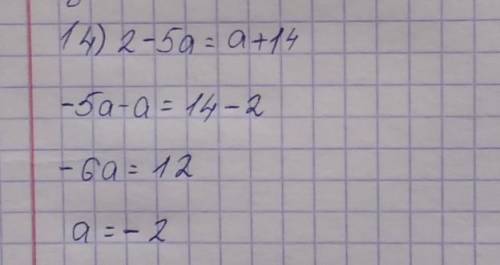 14) 2-5a=a+14
-5a-a=14-2
-6a=12
a=-2